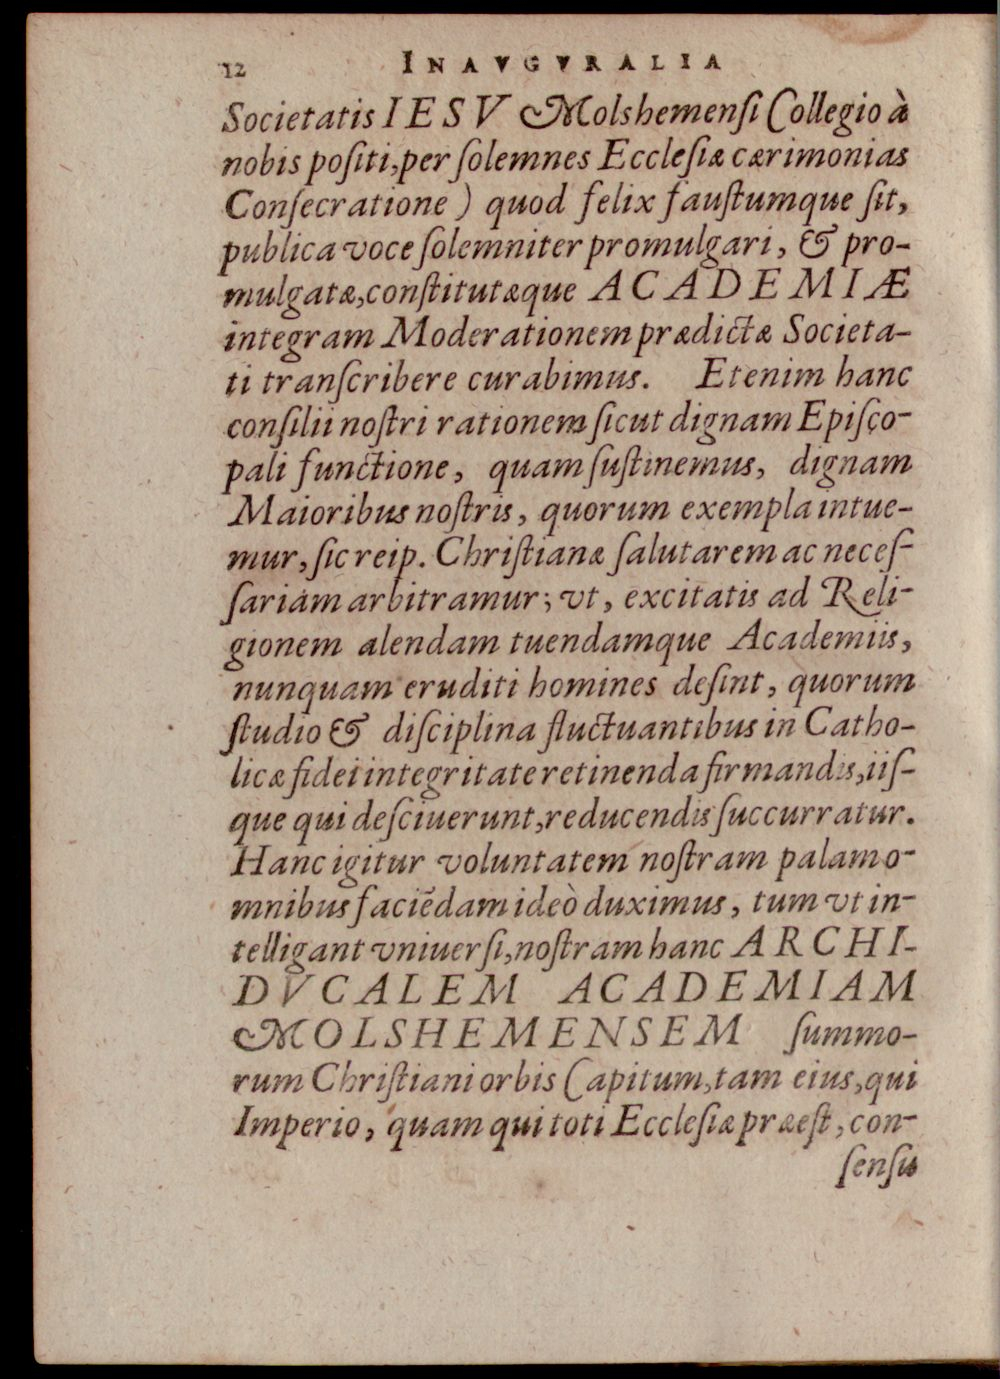 12 INAVGVRALIA
Societatis IESV Molshemenſi Collegio à
nobis poſiti, per ſolemnes Eccleſiæ cærimonias
Conſecratione) quod felix fauſtumque ſit,
publica voce ſolemniter promulgari, & pro-
mulgatæ, conſtitutæque ACADEMIÆ
integram Moderationem prædictæ Societa-
ti tranſcribere curabimus. Etenim hanc
conſilii noſtri rationem ſicut dignam Epiſco-
pali functione, quam ſuſtinemus, dignam
Maioribus noſtris, quorum exempla intue-
mur, ſic reip. Chriſtianæ ſalutarem ac neceſ-
ſariam arbitramur; vt, excitatis ad Reli-
gionem alendam tuendamque Academiis,
nunquam eruditi homines deſint, quorum
ſtudio & diſciplina fluctuantibus in Catho-
licæ fidei integritate retinenda firmandis, iiſ-
que qui deſciuerunt, reducendis ſuccurratur.
Hanc igitur voluntatem noſtram palam o-
mnibus faciẽdam ideò duximus, tum vt in-
telligant vniuerſi, noſtram hanc ARCHI-
DVCALEM ACADEMIAM
MOLSHEMENSEM ſummo-
rum Chriſtiani orbis Capitum, tam eius, qui
Imperio, quam qui toti Eccleſiæ præeſt, con-
ſenſu